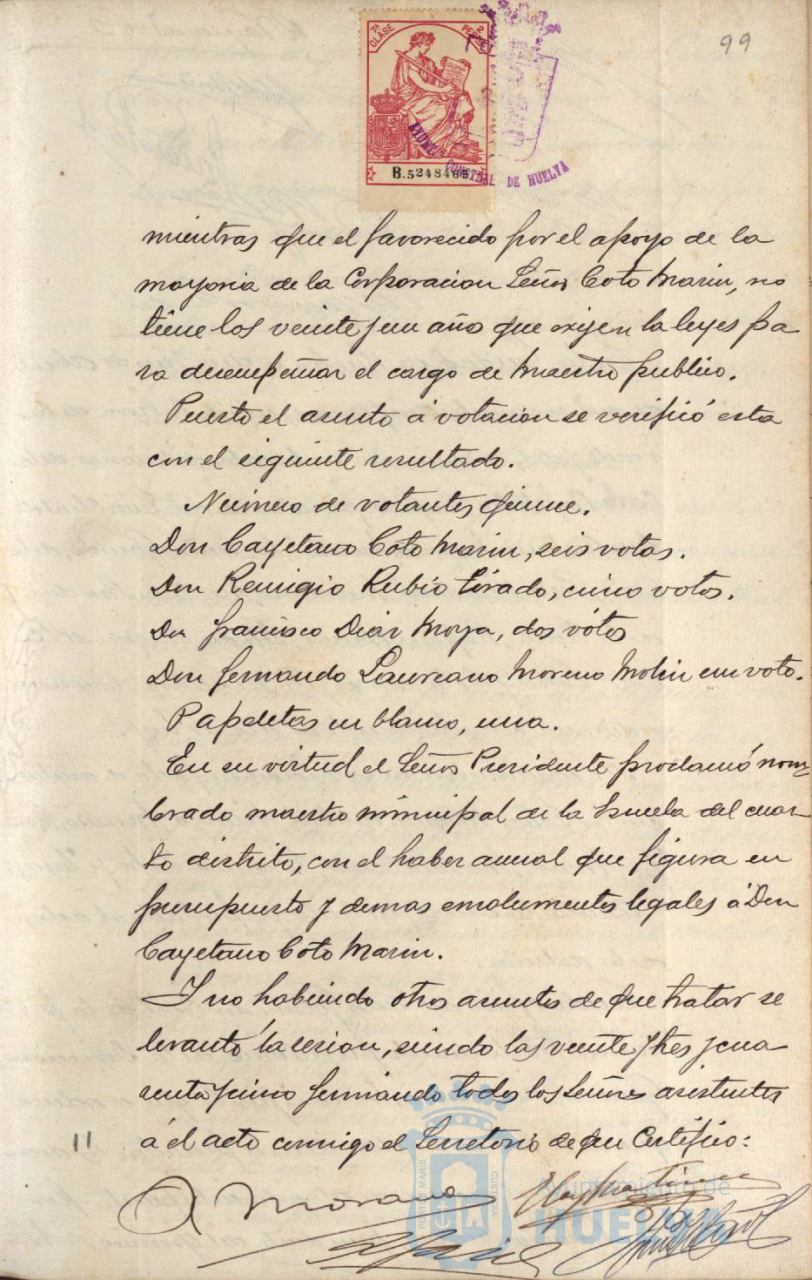 99
7ª CLASE
2 PESETAS
B.5248465
CONSTNAL DE HUELVA
mientras que el favorecido por el apoyo de la
mayoria de la Corporacion Señor Coto Marin, no
tiene los veinte y un año que exijen la leyes pa
ra desempeñar el cargo de Maestro publico.
Puesto el asunto á votacion se verificó esta
con el siguiente resultado.
Número de votantes quince.
Don Cayetano Coto Marin, seis votos.
Don Remigio Rubio Tirado, cinco votos.
Don Francisco Diaz Moya, dos vótos
Don Fernando Laureano Moreno Molin un voto.
Papeletas en blanco, una.
En su virtud el Señor Presidente proclamó nom-
brado maestro municipal de la Escuela del cuar-
to distrito, con el haber anual que figura en
presupuesto y demas emolumentos legales á Don
Cayetano Coto Marin.
Y no habiendo otros asuntos de que tratar se
levantó la sesion, siendo las veinte y tres y cua
renta y cinco firmando todos los Señores asistentes
11
á el acto conmigo el Secretario de que Certifico:
A Morano
Ayuntamiento de
HUELVA